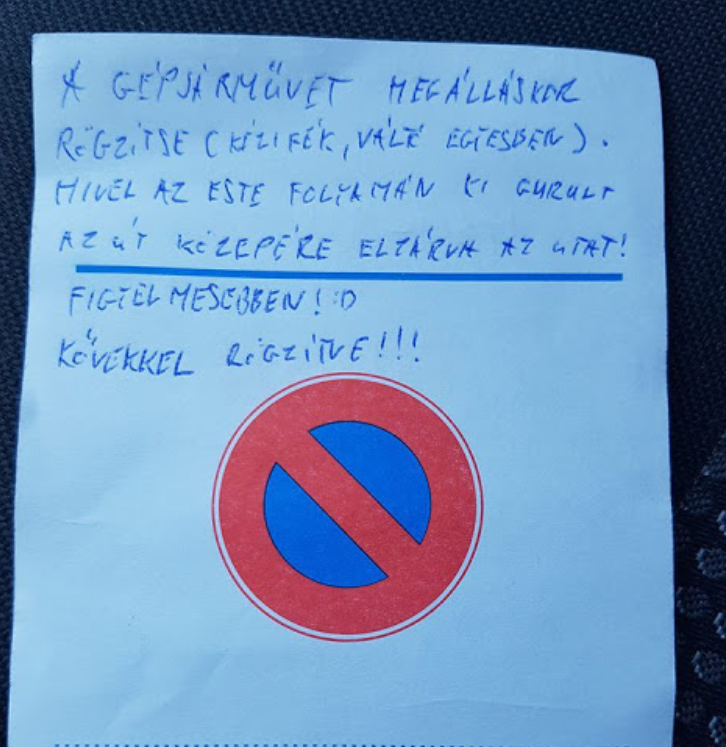 A GÉPJÁRMŰVET MEGÁLLÁSKOR
RÖGZÍTSE (KÉZIFÉK, VÁLTÓ EGYESBEN).
MIVEL AZ ESTE FOLYAMÁN KI GURULT
AZ ÚT KÖZEPÉRE ELZÁRVA AZ UTAT!
FIGYELMESEBBEN! :D
KÖVEKKEL RÖGZÍTVE!!!